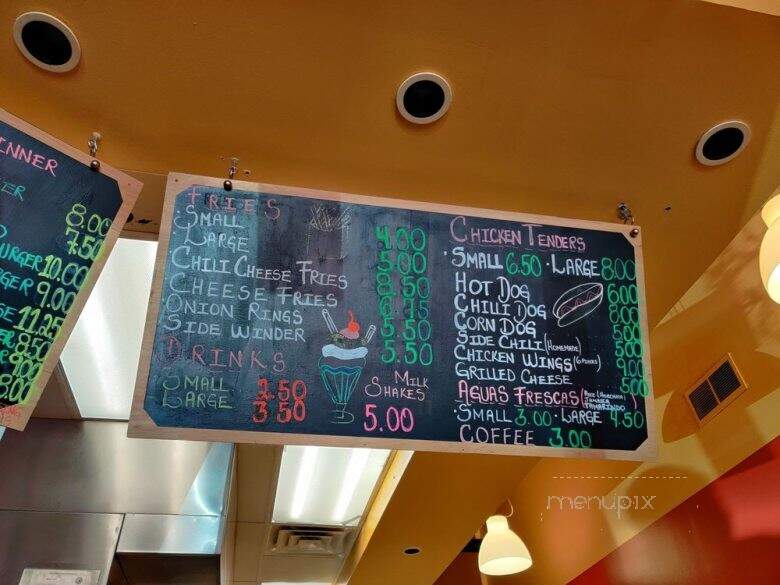 INNER
ER
8.00
7.50
URGER 10.00
GER 9.00
SE 11.25
ER 8.50
8.00
FRIES
SMALL 4.50
LARGE 5.00
CHILI CHEESE FRIES 8.50
CHEESE FRIES 6.75
ONION RINGS 5.50
SIDE WINDER 5.50
DRINKS
SMALL 2.50
LARGE 3.50
MILK
SHAKES
5.00
CHICKEN TENDERS
·SMALL 6.50 ·LARGE 8.00
HOT DOG 6.00
CHILI DOG 8.00
CORN DOG 5.00
SIDE CHILI (HOMEMADE) 5.00
CHICKEN WINGS (6 PIECES) 9.00
GRILLED CHEESE 5.00
AGUAS FRESCAS (RICE (HORCHATA) JAMAICA TAMARINDO
·SMALL 3.00 ·LARGE 4.50
COFFEE 3.00
menupix